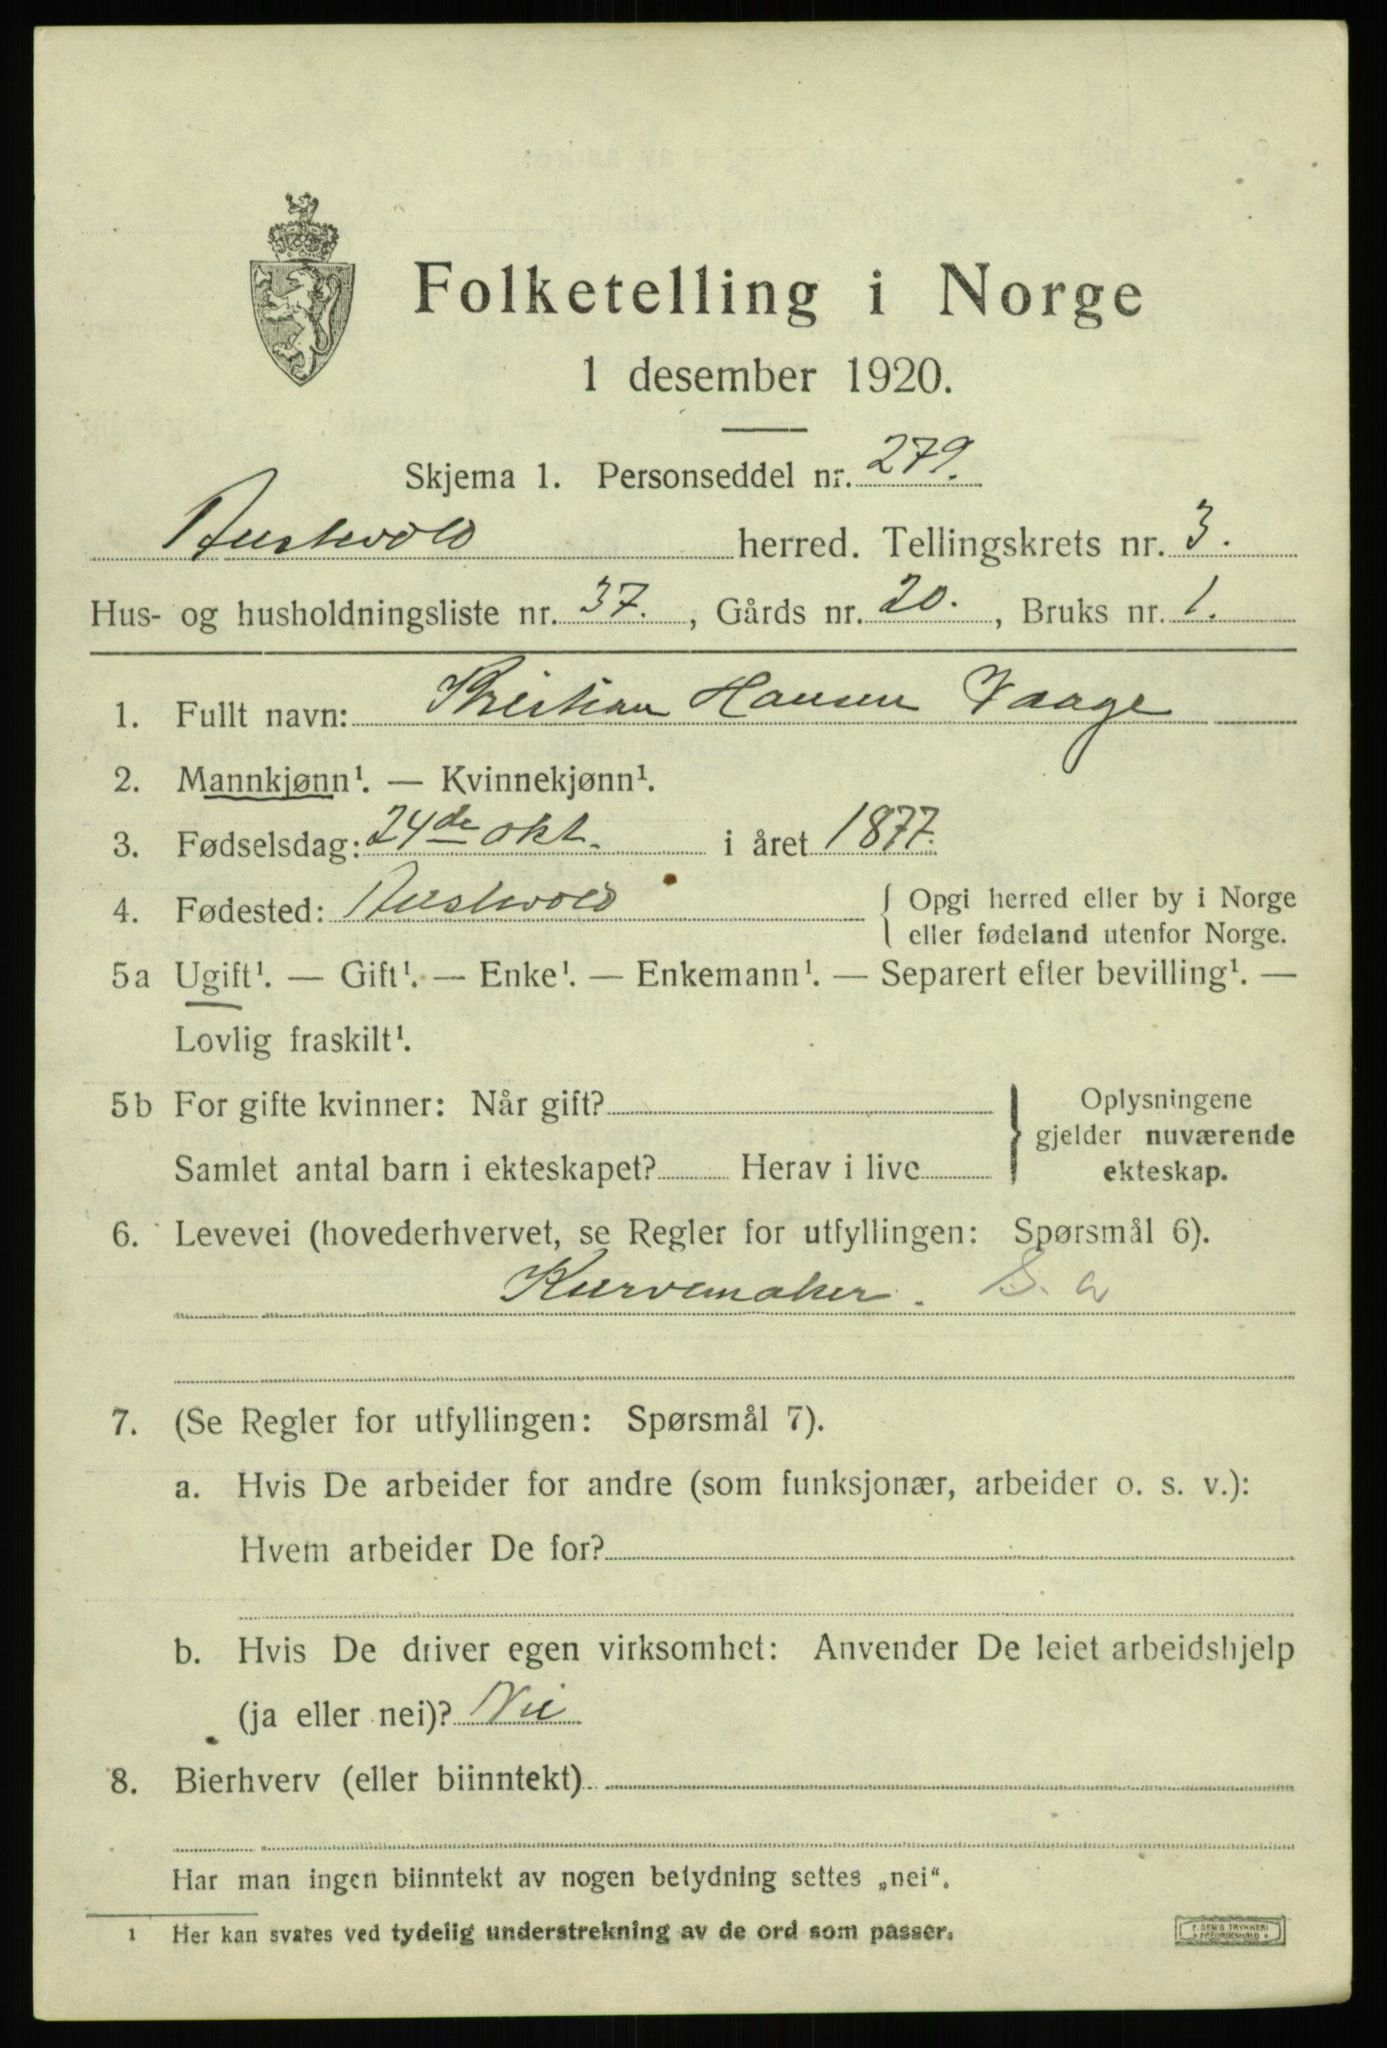 Folketelling i Norge
1 desember 1920.
Skjema 1. Personseddel nr. 279.
Austevold herred. Tellingskrets nr. 3.
Hus- og husholdningsliste nr. 37., Gårds nr. 20., Bruks nr. 1.
1. Fullt navn: Kristian Hansen Vaage
2. Mannkjønn¹. — Kvinnekjønn¹.
3. Fødselsdag: 24de okt. i året 1877.
4. Fødested: Austevold { Opgi herred eller by i Norge
eller fødeland utenfor Norge.
5a Ugift¹. — Gift¹. — Enke¹. — Enkemann¹. — Separert efter bevilling¹. —
Lovlig fraskilt¹.
5b For gifte kvinner: Når gift? } Oplysningene
gjelder nuværende
Samlet antal barn i ekteskapet? Herav i live ekteskap.
6. Levevei (hovederhvervet, se Regler for utfyllingen: Spørsmål 6).
Kurvemaker. S. a
7. (Se Regler for utfyllingen: Spørsmål 7).
a. Hvis De arbeider for andre (som funksjonær, arbeider o. s. v.):
Hvem arbeider De for?
b. Hvis De driver egen virksomhet: Anvender De leiet arbeidshjelp
(ja eller nei)? Nei
8. Bierhverv (eller biinntekt)
Har man ingen biinntekt av nogen betydning settes „nei“.
1 Her kan svares ved tydelig understrekning av de ord som passer.
E. SEM'S TRYKKERI
* FREDRIKSHALD *